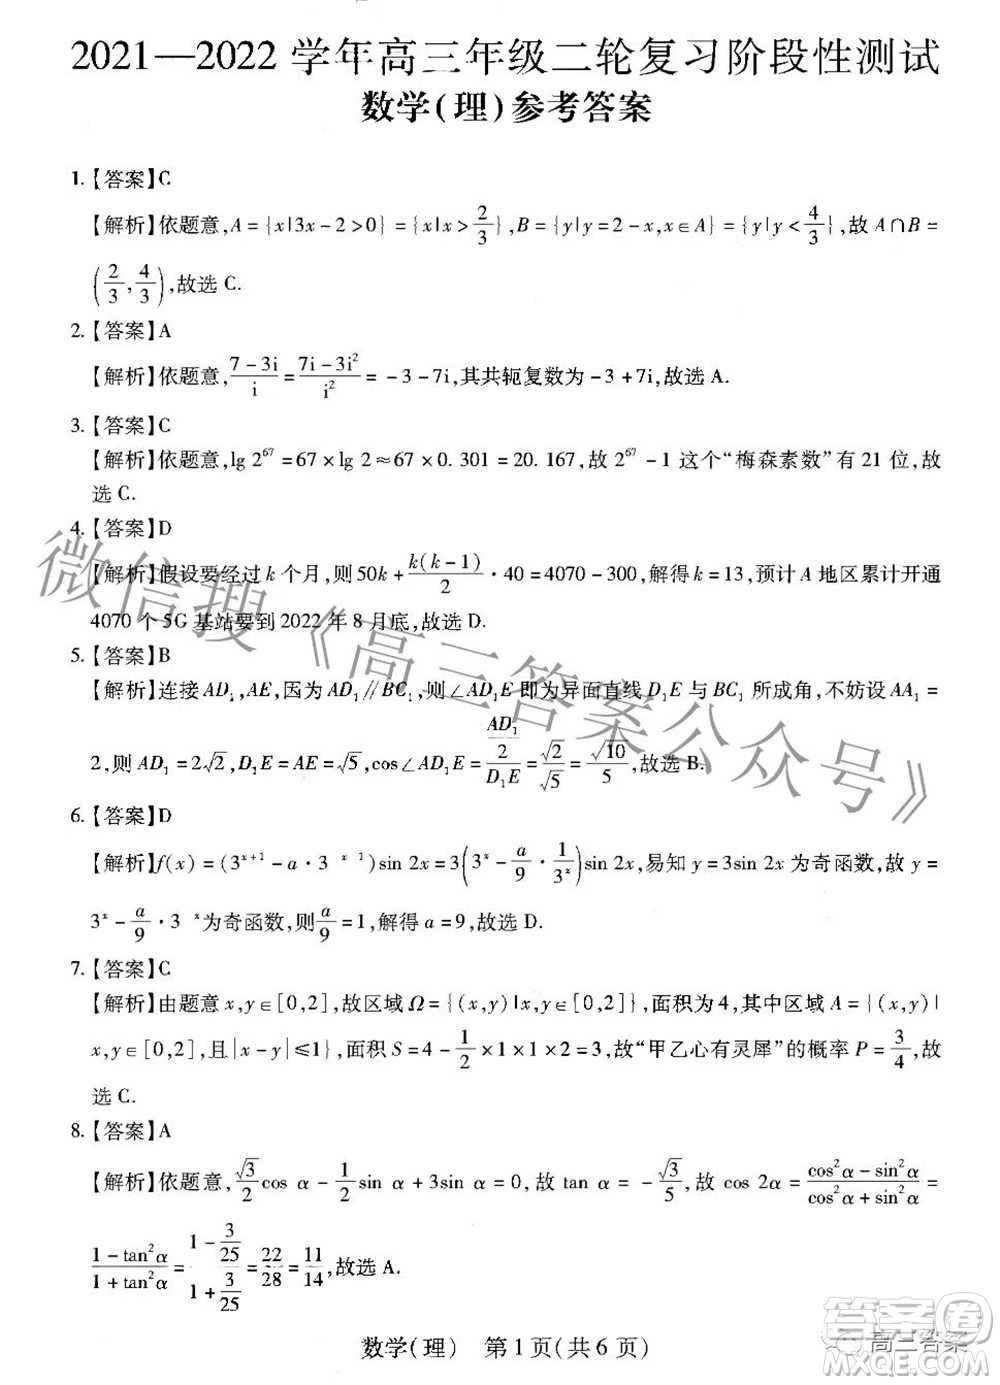 2021—2022 学年高三年级二轮复习阶段性测试
数学(理)参考答案
1.【答案】C
【解析】依题意,A={x|3x-2>0}={x|x>2/3},B={y|y=2-x,x∈A}={y|y<4/3},故 A∩B=
(2/3,4/3),故选 C.
2.【答案】A
【解析】依题意,(7-3i)/i=(7i-3i²)/i²=-3-7i,其共轭复数为-3+7i,故选 A.
3.【答案】C
【解析】依题意,lg 2⁶⁷=67×lg 2≈67×0.301=20.167,故 2⁶⁷-1 这个“梅森素数”有 21 位,故
选 C.
4.【答案】D
【解析】假设要经过 k 个月,则 50k+k(k-1)/2·40=4070-300,解得 k=13,预计 A 地区累计开通
4070 个 5G 基站要到 2022 年 8 月底,故选 D.
5.【答案】B
【解析】连接 AD₁,AE,因为 AD₁∥BC₁,则∠AD₁E 即为异面直线 D₁E 与 BC₁ 所成角,不妨设 AA₁=
2,则 AD₁=2√2,D₁E=AE=√5,cos∠AD₁E=(AD₁/2)/D₁E=√2/√5=√10/5,故选 B.
6.【答案】D
【解析】f(x)=(3ˣ⁺¹-a·3 ˣ ¹)sin 2x=3(3ˣ-a/9·1/3ˣ)sin 2x,易知 y=3sin 2x 为奇函数,故 y=
3ˣ-a/9·3 ˣ为奇函数,则a/9=1,解得 a=9,故选 D.
7.【答案】C
【解析】由题意 x,y∈[0,2],故区域 Ω={(x,y)|x,y∈[0,2]},面积为 4,其中区域 A={(x,y)|
x,y∈[0,2],且|x-y|≤1},面积 S=4-1/2×1×1×2=3,故“甲乙心有灵犀”的概率 P=3/4,故
选 C.
8.【答案】A
【解析】依题意,√3/2cos α-1/2sin α+3sin α=0,故 tan α=-√3/5,故 cos 2α=(cos²α-sin²α)/(cos²α+sin²α)=
(1-tan²α)/(1+tan²α)=(1-3/25)/(1+3/25)=22/28=11/14,故选 A.
数学(理) 第 1 页(共 6 页)
微信搜《高三答案公众号》
答案圈
高三答案
MXQE.COM